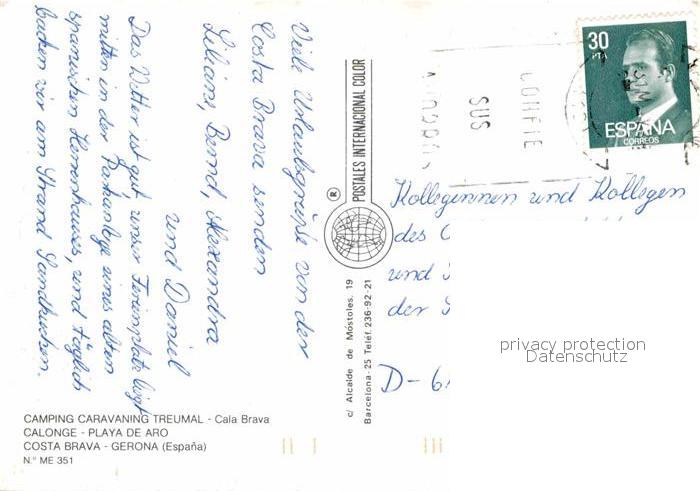 Viele Urlaubsgrüße von der
Costa Brava senden
Liliane, Bernd, Alexandra
und Daniel
Das Wetter ist gut, unser Ferienplatz liegt
mitten in der Parkanlage eines alten
spanischen Herrenhauses, und täglich
backen wir am Strand Sandkuchen.
CAMPING CARAVANING TREUMAL - Cala Brava
CALONGE - PLAYA DE ARO
COSTA BRAVA - GERONA (España)
N.º ME 351
® POSTALES INTERNACIONAL COLOR
c/ Alcalde de Móstoles, 19
Barcelona-25 Teléf. 236-92-21
CONFIE
SUS
30
PTA
ESPAÑA
CORREOS
Kolleginnen und Kollegen
des
und
der
D-6
privacy protection
Datenschutz